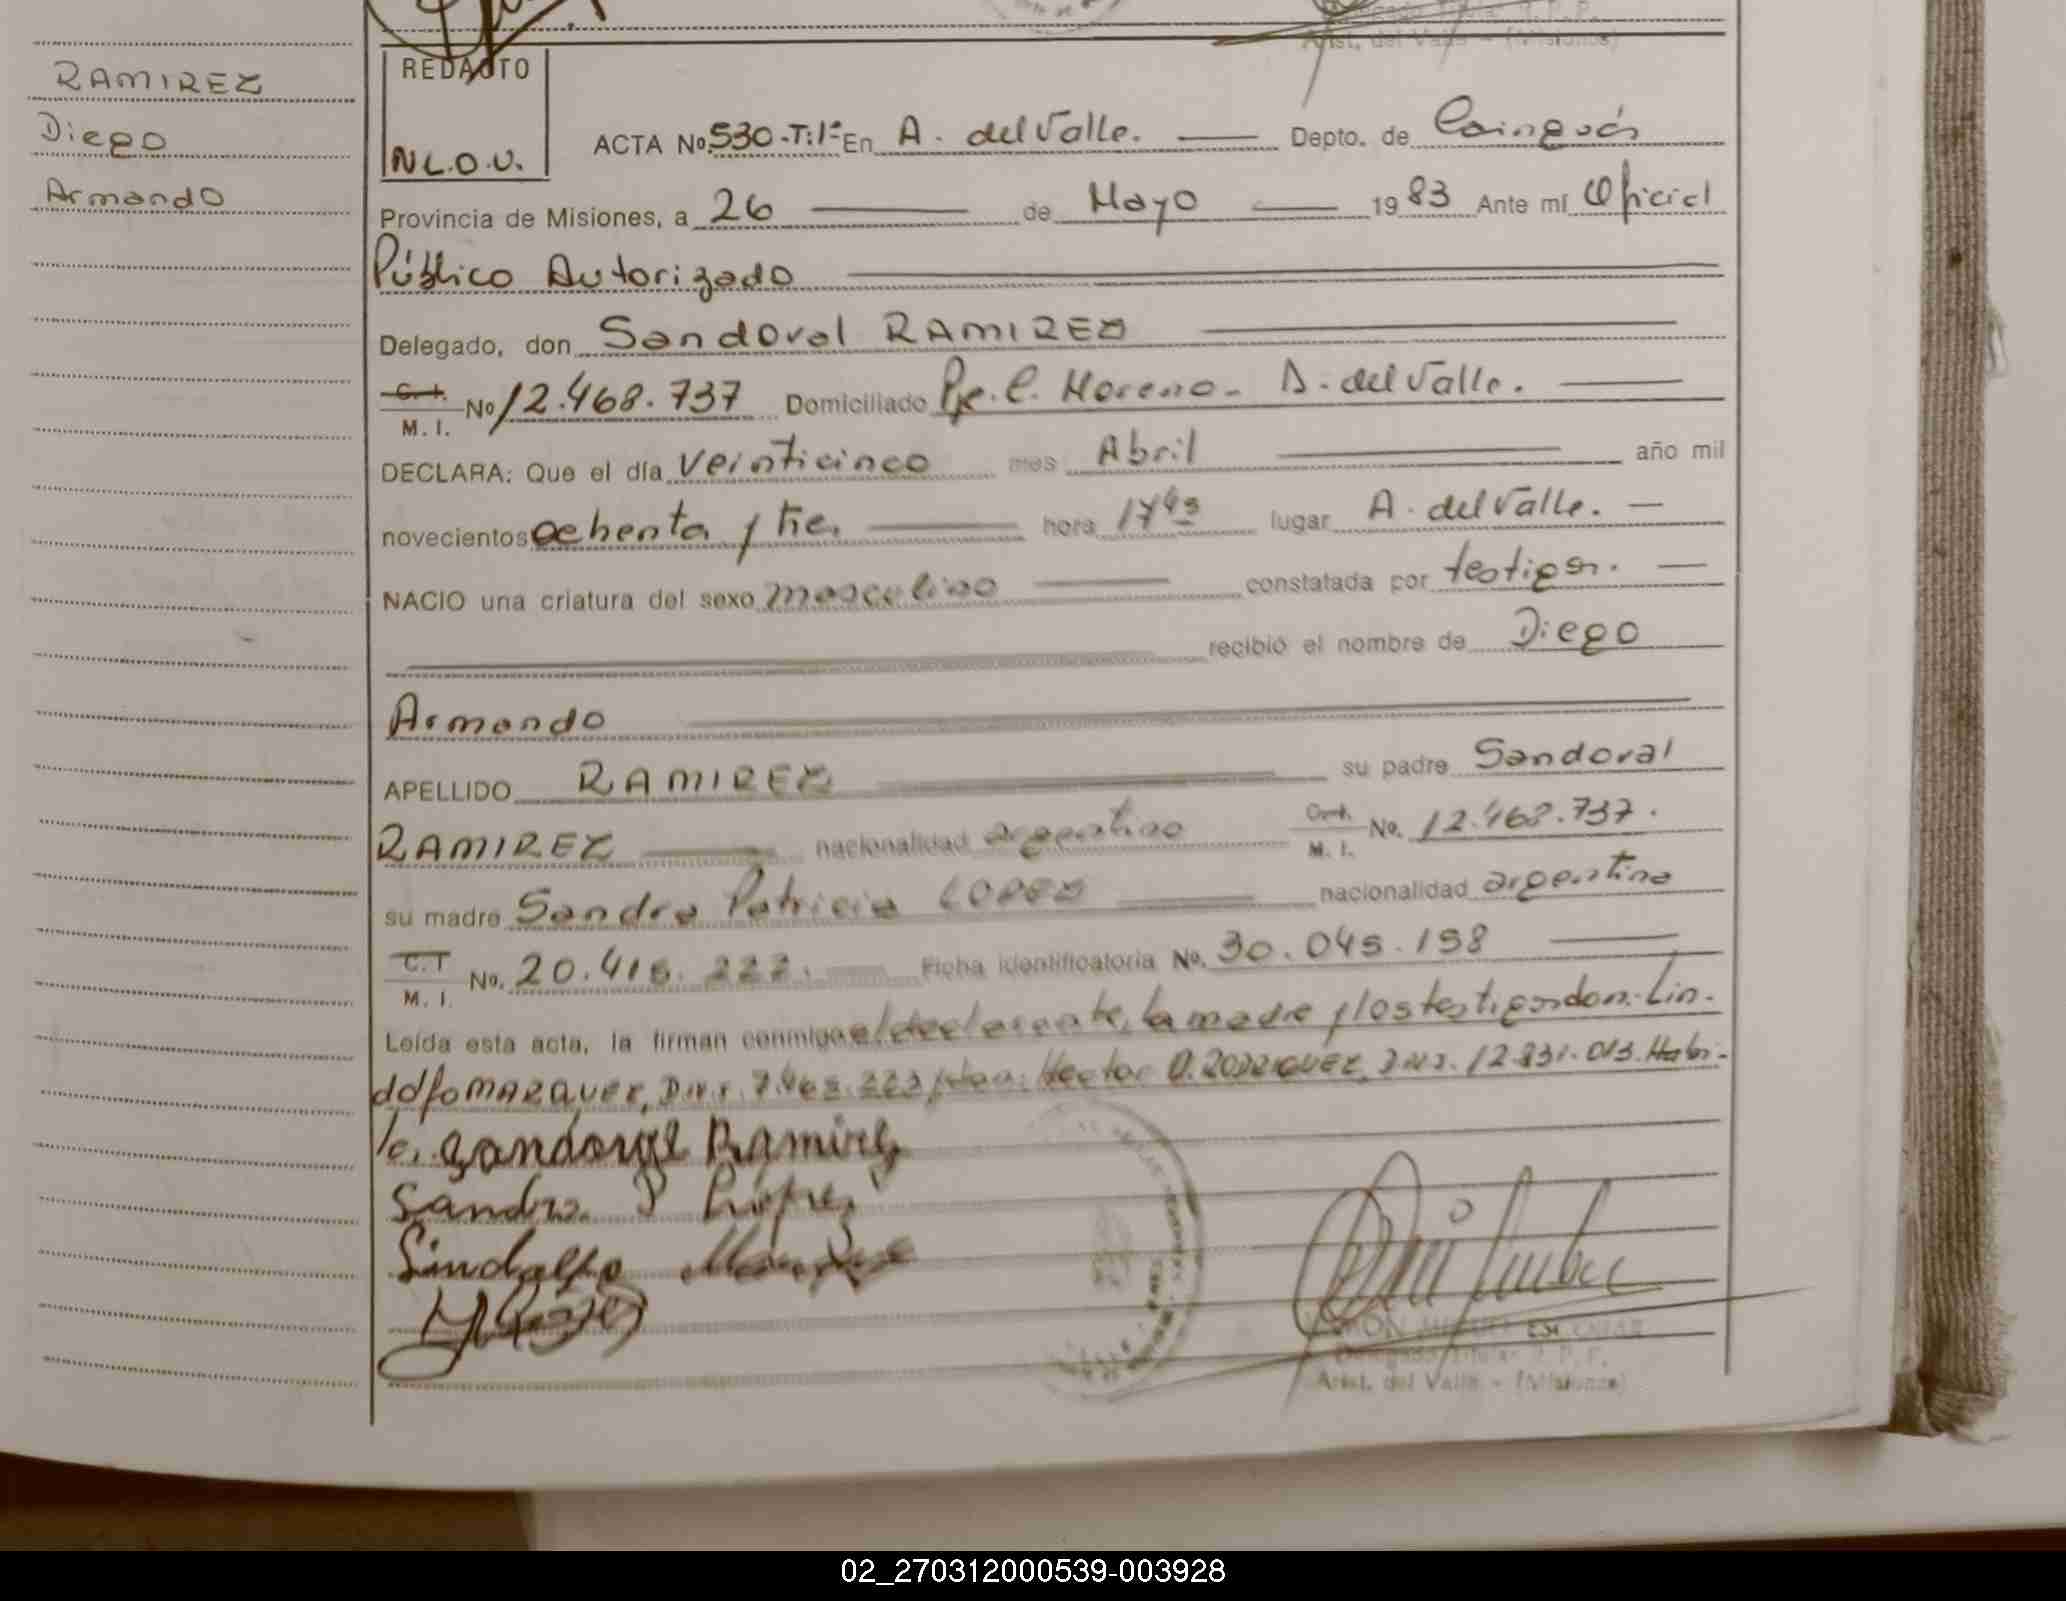 Arist. del Valle - (Misiones)
RAMIREZ
Diego
Armando
REDACTO
N.L.O.V.
ACTA Nº 530-T:1º En A. del Valle. Depto. de Cainguás
Provincia de Misiones, a 26 de Mayo 1983 Ante mí Oficial
Público Autorizado
Delegado, don Sandoval RAMIREZ
C.I. M.I. Nº 12.468.737 Domiciliado Pje. C. Moreno - A. del Valle.
DECLARA: Que el día veinticinco mes Abril año mil
novecientos ochenta y tre. hora 17 45 lugar A. del Valle.
NACIO una criatura del sexo masculino constatada por testigos.
recibió el nombre de Diego
Armando
APELLIDO RAMIREZ su padre Sandoval
RAMIREZ nacionalidad argentino C.I. M.I. No. 12.468.737.
su madre Sandra Patricia LOPEZ nacionalidad argentina
C.I M.I. No. 20.416.222. Ficha identificatoria No. 30.045.198
Leída esta acta, la firman conmigo el declarante, la madre y los testigos don: Lin-
dolfo MARQUEZ, D.N.I. 7.463.223 y don: Hector O. RODRIGUEZ, D.N.I. 12.831.013. Habi-
le. Sandoval Ramirez
Sandra P López
Lindolfo Marquez
RAMON MIGUEL ESCOBAR
Delegado Titular R.P.P.
Arist. del Valle - (Misiones)
02_270312000539-003928